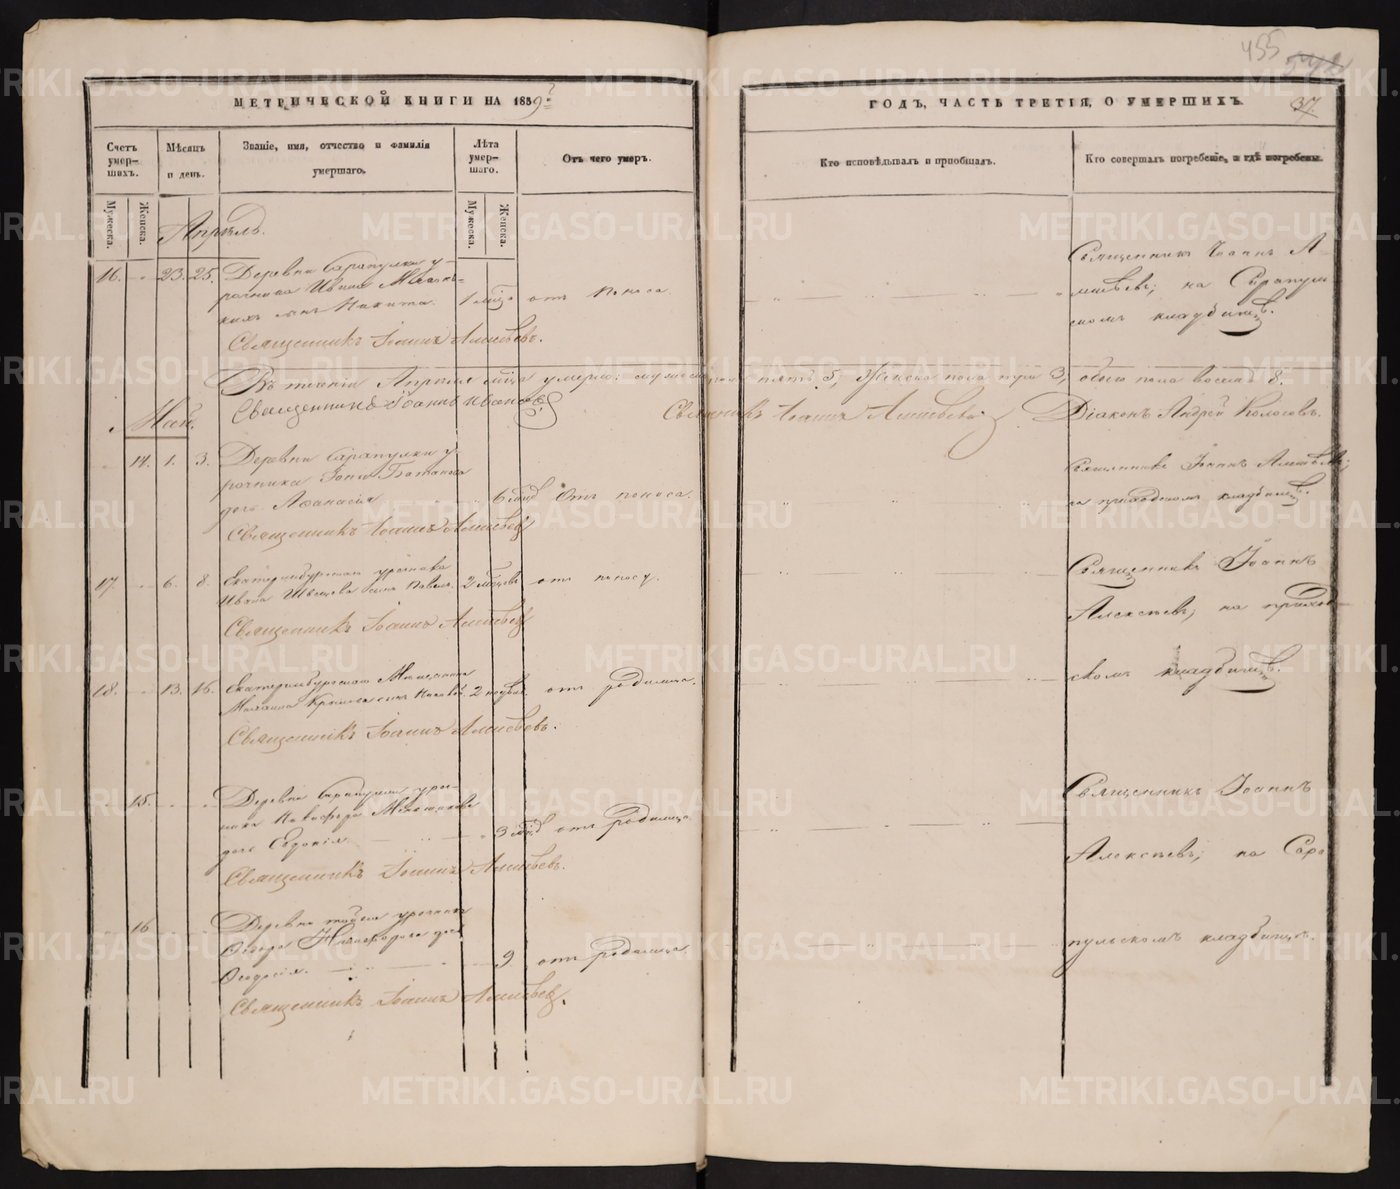 455
МЕТРИЧЕСКОЙ КНИГИ НА 1859 г.
ГОДЪ, ЧАСТЬ ТРЕТІЯ, О УМЕРШИХЪ.
37.
Счетъ умер-шихъ.
Мѣсяцъ и день.
Званіе, имя, отчество и фамилія умершаго.
Лѣта умер-шаго.
Отъ чего умеръ.
Кто исповѣдывалъ и пріобщалъ.
Кто совершалъ погребеніе, и гдѣ погребены.
Мужеска.
Женска.
Мужеска.
Женска.
Апрѣль.
16. 23. 25. Деревни Сарапулки у-
рочника Ивана
сынъ Никита. 1 мѣсяца отъ поноса.
Священникъ Іоаннъ А-
лексѣевъ; на Сарапуль-
скомъ кладбищѣ.
Священникъ Іоаннъ Алексѣевъ.
Въ теченіи Апрѣля мѣсяца умерло: мужеска пола пять 5, Женска пола три 3, обоего пола восемь 8.
Священникъ Іоаннъ Ивановъ
Священникъ Іоаннъ Алексѣевъ.
Діаконъ Андрей Колосовъ.
Май.
14. 1. 3. Деревни Сарапулки у-
рочника
дочь Афанасія 6 мѣсяцевъ Отъ поноса.
Священникъ Іоаннъ Алексѣевъ;
на приходскомъ кладбищѣ.
Священникъ Іоаннъ Алексѣевъ
17. 6. 8. Екатеринбургскаго урочника
Ивана Швецова сынъ Павелъ. 2 мѣсяцевъ отъ поносу.
Священникъ Іоаннъ
Алексѣевъ; на приход-
скомъ кладбищѣ.
Священникъ Іоаннъ Алексѣевъ
18. 13. 16. Екатеринбургскаго Мѣщанина
Михаила сынъ 2 недѣль отъ родимца.
Священникъ Іоаннъ Алексѣевъ.
15. Деревни Сарапулки уроч-
ника Никифора
дочь Евдокія 3 мѣсяцевъ отъ родимца.
Священникъ Іоаннъ
Алексѣевъ; на Сара-
пульскомъ кладбищѣ.
Священникъ Іоаннъ Алексѣевъ.
16 Деревни тойже урочника
Ѳедора дочь
Ѳеодосія. 9 отъ родимца.
Священникъ Іоаннъ Алексѣевъ.
METRIKI.GASO-URAL.RU